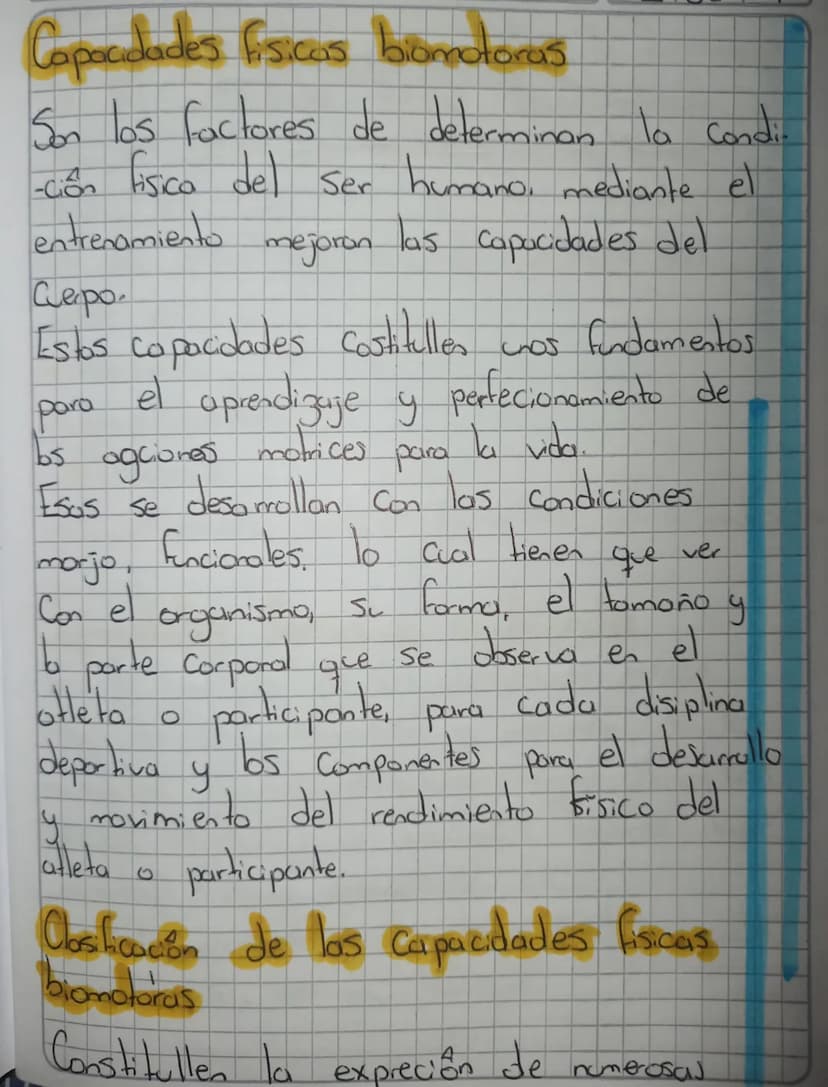 Capacidades fisicas biomotoras
Son los factores de determinan la condi-
-ción fisica del ser humano, mediante el
entrenamiento mejoran las capacidades del
Cuerpo.
Estas capacidades Costitullen unos fundamentos
para el aprendizaje y perfecionamiento de
las agciones motrices para la vida.
Esas se desarrollan Con las condiciones
morjo, funcionales. lo cual tienen que ver
Con el organismo, su forma, el tamaño y
la parte Corporal que se observa en el
atleta o participante, para cada disiplina
deportiva y los Componentes para el desarrollo
y movimiento del rendimiento fisico del
atleta o participante.
Clasificación de las Capacidades fisicas
biomotoras
Constitullen la expreción de numerosas